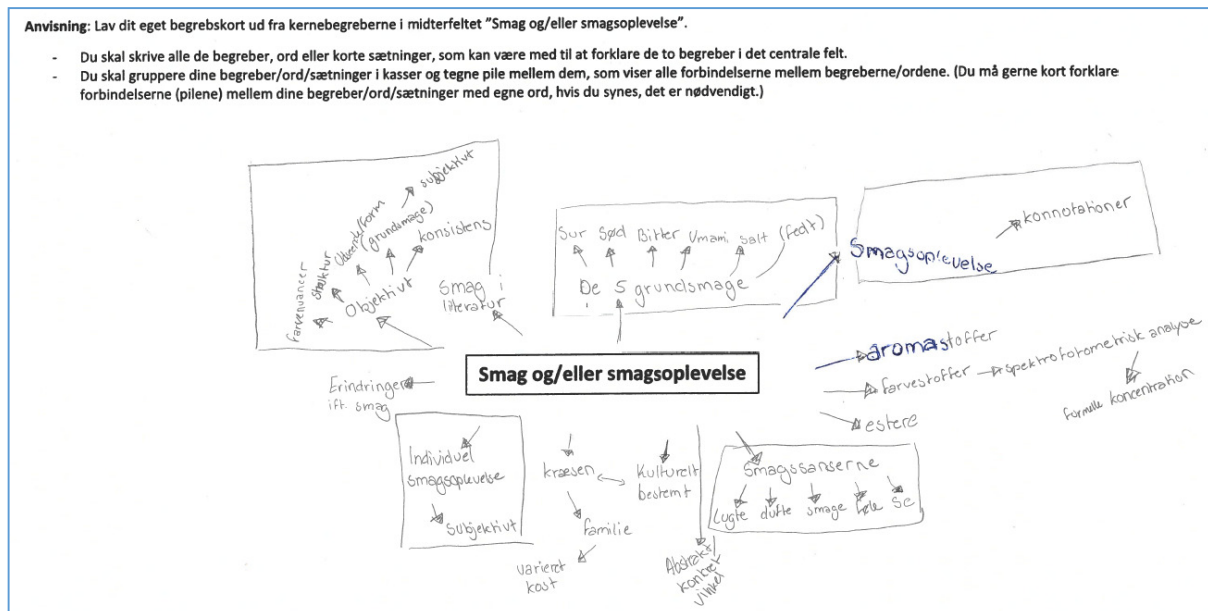 Anvisning: Lav dit eget begrebskort ud fra kernebegreberne i midterfeltet ”Smag og/eller smagsoplevelse”.
- Du skal skrive alle de begreber, ord eller korte sætninger, som kan være med til at forklare de to begreber i det centrale felt.
- Du skal gruppere dine begreber/ord/sætninger i kasser og tegne pile mellem dem, som viser alle forbindelserne mellem begreberne/ordene. (Du må gerne kort forklare
forbindelserne (pilene) mellem dine begreber/ord/sætninger med egne ord, hvis du synes, det er nødvendigt.)
farvenuancer
struktur
Udseende/form
(grundsmage)
subjektivt
konsistens
Objektivt
Smag i
literatur
Sur Sød Bitter Umami salt (fedt)
De 5 grundsmage
Smagsoplevelse
konnotationer
Smag og/eller smagsoplevelse
aromastoffer
farvestoffer
spektrofotometrisk analyse
koncentration
estere
Erindringer
ift. smag
Individuel
smagsoplevelse
subjektivt
kræsen
Kulturelt
bestemt
familie
varieret
kost
Abstrakt/
konkret
vinkel
Smagssanserne
Lugte dufte smage føle se